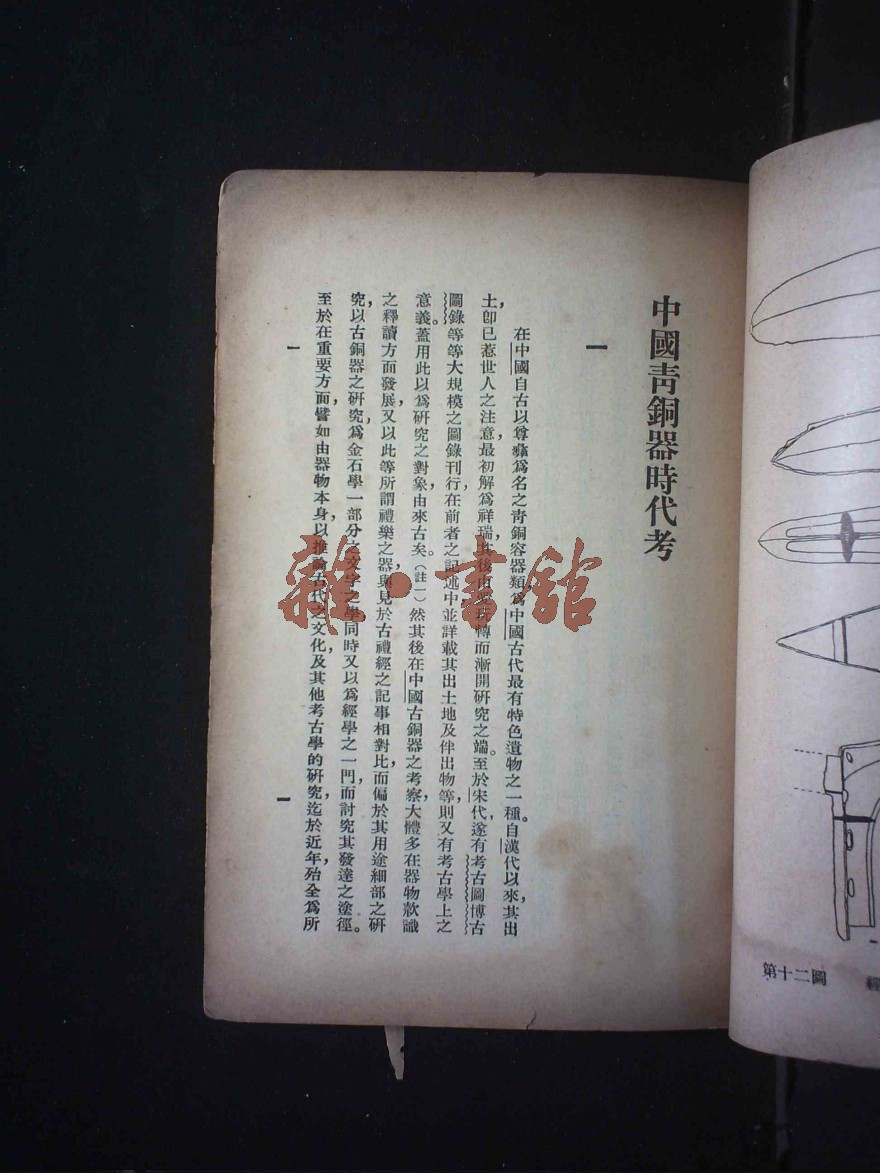 中國青銅器時代考
一
在中國自古以尊彝爲名之青銅容器類，爲中國古代最有特色遺物之一種。自漢代以來，其出
土，卽已惹世人之注意，最初解爲祥瑞，其後由玩轉而漸開研究之端。至於宋代，遂有考古圖博古
圖錄等等大規模之圖錄刊行，在前者之記述中，並詳載其出土地及伴出物等，則又有考古學上之
意義。蓋用此以爲研究之對象，由來古矣。（註一）然其後在中國古銅器之考察，大體多在器物款識
之釋讀方面發展，又以此等所謂禮樂之器，與見於古禮經之記事相對比，而偏於其用途細部之研
究，以古銅器之研究，爲金石學一部分之文字之學，同時又以爲經學之一門，而討究其發達之途徑。
至於在重要方面，譬如由器物本身，以推論古代之文化，及其他考古學的研究，迄於近年，殆全爲所
一
第十二圖
雜·書館